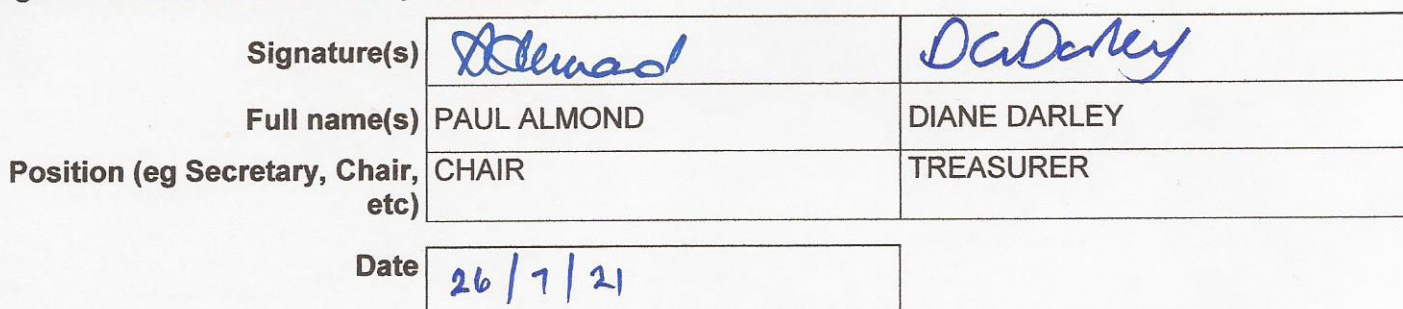 Signature(s) DaDarley
Full name(s) PAUL ALMOND DIANE DARLEY
Position (eg Secretary, Chair, CHAIR TREASURER
etc)
Date 26/7/21